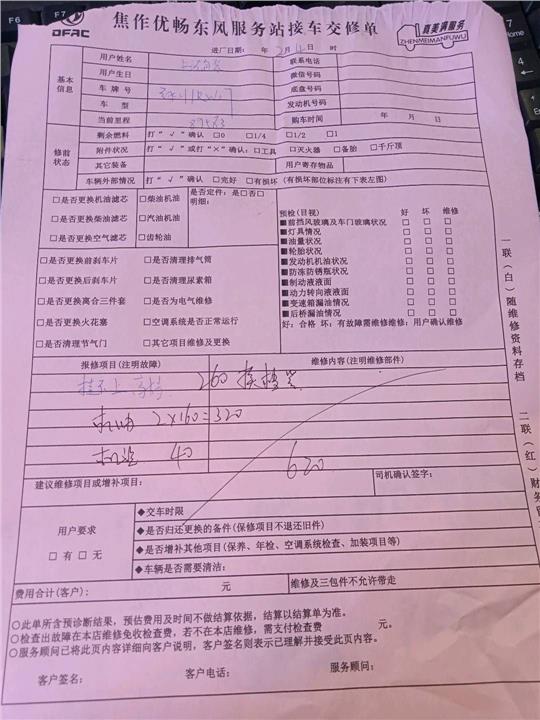 F6 F7
DFAC
焦作优畅东风服务站接车交修单
真美满服务
ZHENMEIMANFUWU
进厂日期： 年 2月 4日 时
基本信息
用户姓名 联系电话
用户生日 微信号码
车 牌 号 底盘号码
车 型 发动机号码
当前里程 购车时间 年 月 日
修前状态
剩余燃料 打“√”确认 □0 □1/4 □1/2 □1
附件状况 打“√”或打“×”确认：□工具 □灭火器 □备胎 □千斤顶
其它装备 用户寄存物品
车辆外部情况 打“√”确认 □完好 □有损坏（有损坏部位标注有下表左图）
□是否更换机油滤芯 □柴油机油 是否定件：是□否□
明细：
□是否更换柴油滤芯 □汽油机油
□是否更换空气滤芯 □齿轮油
□是否更换前刹车片 □是否清理排气筒
□是否更换后刹车片 □是否清理尿素箱
□是否更换离合三件套 □是否为电气维修
□是否更换火花塞 □空调系统是否正常运行
□是否清理节气门 □其它项目维修及更换
预检(目视) 好 坏 维修
■前挡风玻璃及车门玻璃状况 □ □ □
■灯具情况 □ □ □
■油量状况 □ □ □
■轮胎状况 □ □ □
■发动机机油状况 □ □ □
■防冻防锈瓶状况 □ □ □
■制动液液面 □ □ □
■动力转向液液面 □ □ □
■变速箱漏油情况 □ □ □
■后桥漏油情况 □ □ □
好：合格 坏：有故障需维修维修：用户确认维修
报修项目(注明故障) 维修内容(注明维修部件)
挂不上高档 260
机油 2×160=320
机滤 40
620
建议维修项目或增补项目： 司机确认签字：
用户要求
□ 有 □ 无
◆交车时限
◆是否归还更换的备件(保修项目不退还旧件)
◆是否增补其他项目(保养、年检、空调系统检查、加装项目等)
◆车辆是否需要清洁：
费用合计(客户)： 元 维修及三包件不允许带走
○此单所含预诊断结果，预估费用及时间不做结算依据，结算以结算单为准。
○检查出故障在本店维修免收检查费，若不在本店维修，需支付检查费 元。
○服务顾问已将此页内容详细向客户说明，客户签名则表示已理解并接受此页内容。
客户签名： 客户电话： 服务顾问：
一联（白）随维修资料存档
二联（红）财务